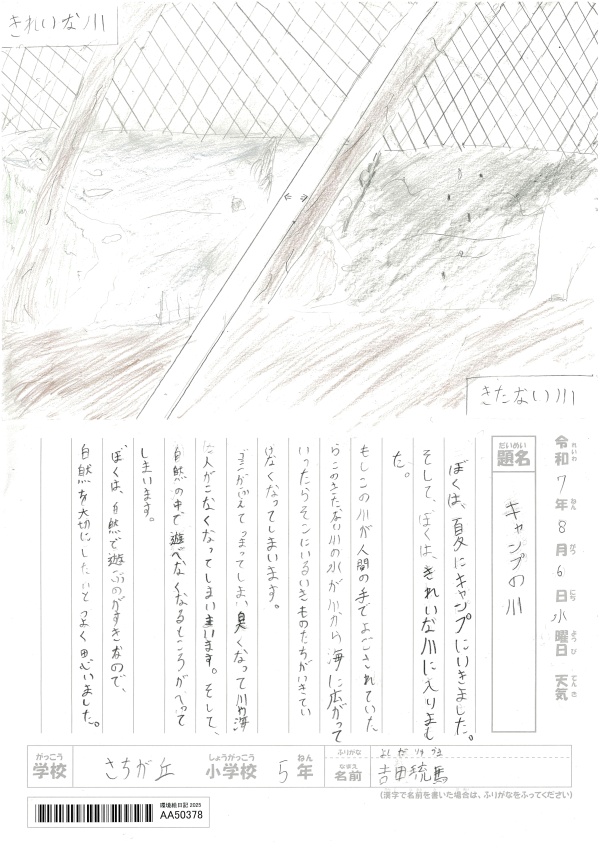 きれいな川
きたない川
令和7年8月6日水曜日 天気
れいわ ねん がつ にち ようび てんき
だいめい
題名
キャンプの川
ぼくは、夏にキャンプにいきました。
そして、ぼくは、きれいな川に入りまし
た。
もしこの川が人間の手でよごされていた
らこのきたない川の水が川から海に広がって
いったらそこにいるいきものたちがいきてい
けなくなってしまいます。
ゴミがふえてつまってしまい臭くなって川や海
に人がこなくなってしまいます。そして、
自然の中で遊べなくなるところがへって
しまいます。
ぼくは、自然で遊ぶのがすきなので、
自然を大切にしたいとつよく思いました。
がっこう
学校
さちが丘
しょうがっこう
小学校
5
ねん
年
ふりがな
よしだりゅうま
なまえ
名前
吉田琉馬
(漢字で名前を書いた場合は、ふりがなをふってください)
環境絵日記 2025
AA50378